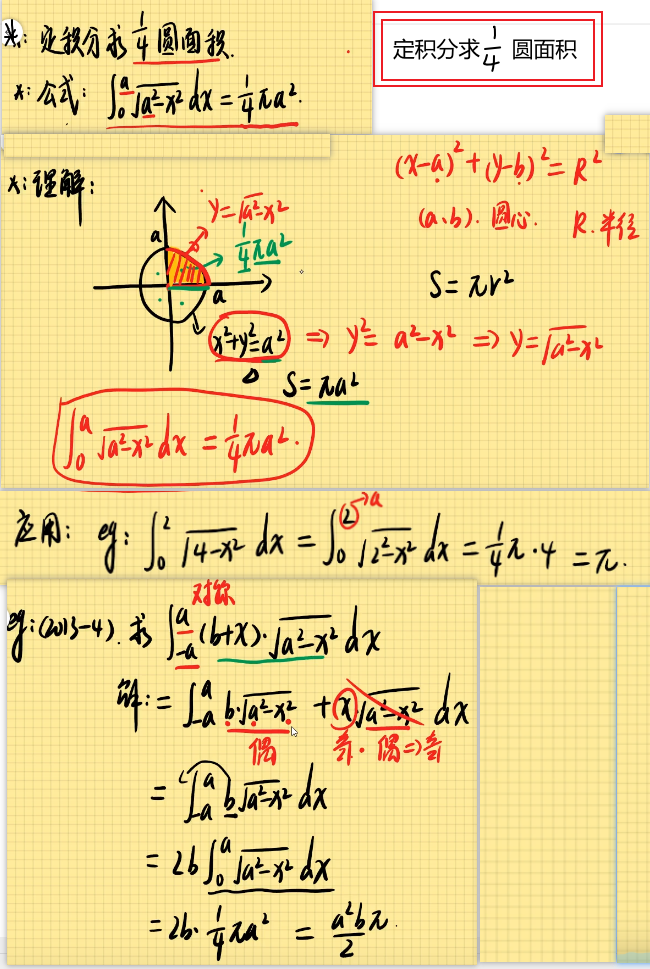 *: 定积分求 1/4 圆面积.
定积分求 1/4 圆面积
*: 公式: ∫₀ᵃ √(a²-x²) dx = 1/4 πa².
*: 理解:
(x-a)² + (y-b)² = R²
(a, b). 圆心. R. 半径
y = √(a²-x²)
a
1/4 πa²
a
S = πr²
x²+y²=a² ⇒ y² = a²-x² ⇒ y = √(a²-x²)
S = πa²
∫₀ᵃ √(a²-x²) dx = 1/4 πa².
应用: eg: ∫₀² √(4-x²) dx = ∫₀² √(2²-x²) dx = 1/4 π·4 = π.
→a
对称
eg: (2013-4). 求 ∫₋ₐᵃ (b+x)·√(a²-x²) dx
解: = ∫₋ₐᵃ b·√(a²-x²) + x·√(a²-x²) dx
偶 奇·偶⇒奇
= ∫₋ₐᵃ b√(a²-x²) dx
= 2b ∫₀ᵃ √(a²-x²) dx
= 2b· 1/4 πa² = a²bπ/2.